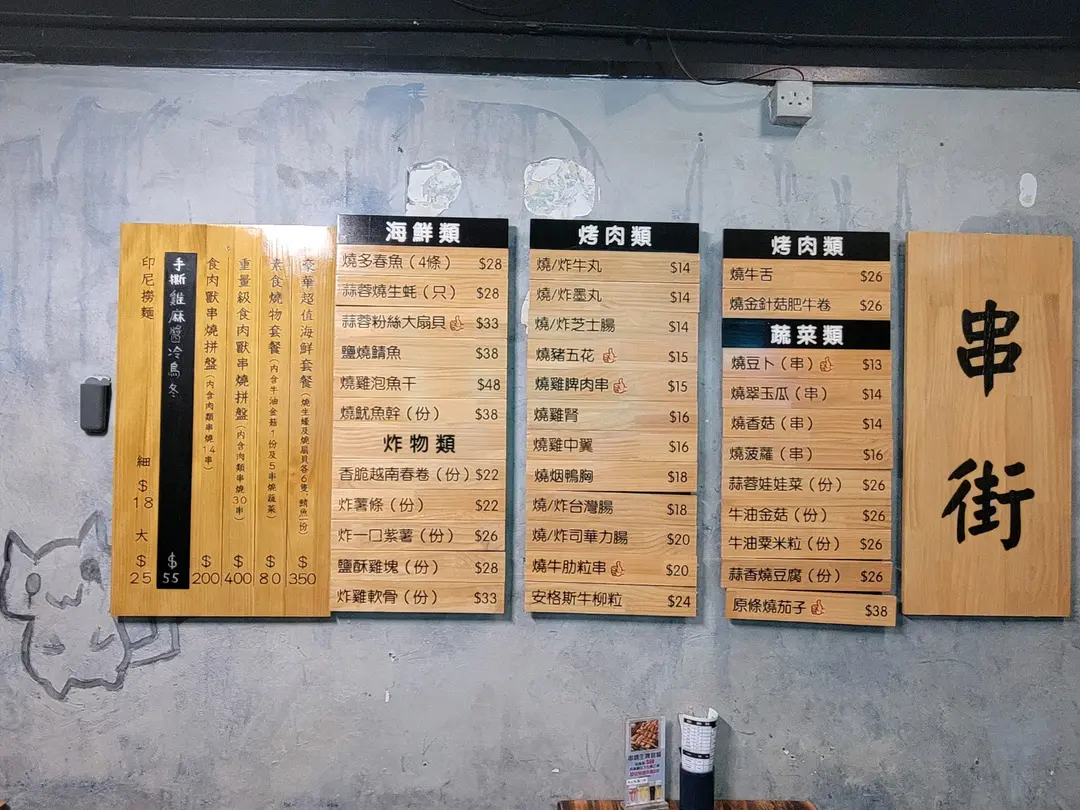 印尼撈麵 細 $18 大 $25
手撕雞麻醬冷烏冬 $55
食肉獸串燒拼盤(內含肉類串燒14串) $200
重量級食肉獸串燒拼盤(內含肉類串燒30串) $400
素食燒物套餐(內含牛油金菇1份及5串燒蔬菜) $80
豪華超值海鮮套餐(燒生蠔及燒扇貝各6隻,鯖魚1份) $350
海鮮類
燒多春魚(4條) $28
蒜蓉燒生蚝(只) $28
蒜蓉粉絲大扇貝 $33
鹽燒鯖魚 $38
燒雞泡魚干 $48
燒魷魚幹(份) $38
炸物類
香脆越南春卷(份) $22
炸薯條(份) $22
炸一口紫薯(份) $26
鹽酥雞塊(份) $28
炸雞軟骨(份) $33
烤肉類
燒/炸牛丸 $14
燒/炸墨丸 $14
燒/炸芝士腸 $14
燒豬五花 $15
燒雞脾肉串 $15
燒雞腎 $16
燒雞中翼 $16
燒烟鴨胸 $18
燒/炸台灣腸 $18
燒/炸司華力腸 $20
燒牛肋粒串 $20
安格斯牛柳粒 $24
烤肉類
燒牛舌 $26
燒金針菇肥牛卷 $26
蔬菜類
燒豆卜(串) $13
燒翠玉瓜(串) $14
燒香菇(串) $14
燒菠蘿(串) $16
蒜蓉娃娃菜(份) $26
牛油金菇(份) $26
牛油粟米粒(份) $26
蒜香燒豆腐(份) $26
原條燒茄子 $38
串街